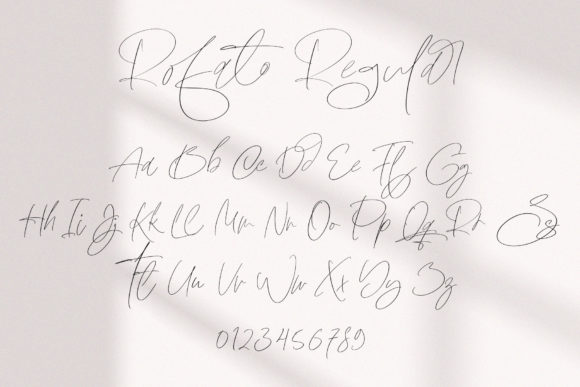 Rofato Regular
Aa Bb Cc Dd Ee Ff Gg
Hh Ii Jj Kk Ll Mm Nn Oo Pp Qq Rr Ss
Tt Uu Vv Ww Xx Yy Zz
0123456789